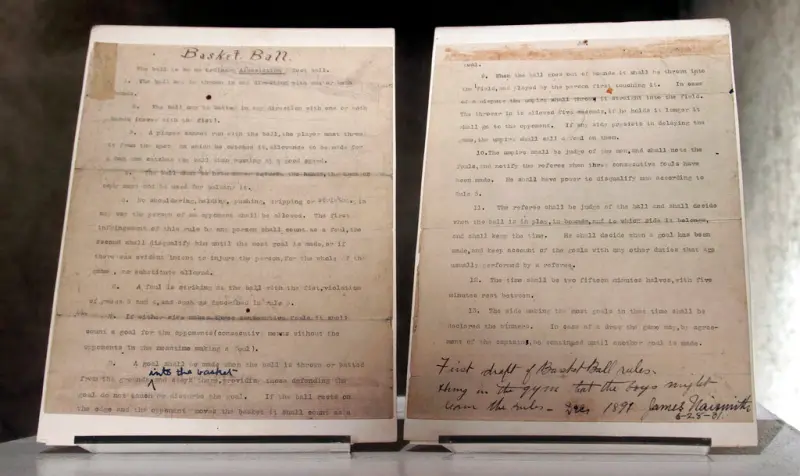 Basket Ball.
The ball to be an ordinary Association foot ball.
1. The ball may be thrown in any direction with one or both
hands.
2. The ball may be batted in any direction with one or both
hands (never with the fist).
3. A player cannot run with the ball, the player must throw
it from the spot on which he catches it, allowance to be made for
a man who catches the ball when running at a good speed.
4. The ball must be held by the hands, the arms or
body must not be used for holding it.
5. No shouldering, holding, pushing, tripping or striking, in
any way the person of an opponent shall be allowed. The first
infringement of this rule by any person shall count as a foul, the
second shall disqualify him until the next goal is made, or if
there was evident intent to injure the person, for the whole of the
game, no substitute allowed.
6. A foul is striking at the ball with the fist, violation
of rules 3 and 4, and such as described in rule 5.
7. If either side makes three consecutive fouls, it shall
count a goal for the opponents (consecutive means without the
opponents in the meantime making a foul).
8. A goal shall be made when the ball is thrown or batted
into the basket
from the grounds and stays there, providing those defending the
goal do not touch or disturb the goal. If the ball rests on
the edge and the opponent moves the basket it shall count as a
goal.
9. When the ball goes out of bounds it shall be thrown into
the field, and played by the person first touching it. In case
of a dispute the umpire shall throw it straight into the field.
The thrower in is allowed five seconds, if he holds it longer it
shall go to the opponent. If any side persists in delaying the
game, the umpire shall call a foul on them.
10. The umpire shall be judge of the men, and shall note the
fouls, and notify the referee when three consecutive fouls have
been made. He shall have power to disqualify men according to
Rule 5.
11. The referee shall be judge of the ball and shall decide
when the ball is in play, in bounds, and to which side it belongs,
and shall keep the time. He shall decide when a goal has been
made, and keep account of the goals with any other duties that are
usually performed by a referee.
12. The time shall be two fifteen minutes halves, with five
minutes rest between.
13. The side making the most goals in that time shall be
declared the winners. In case of a draw the game may, by agree-
ment of the captains, be continued until another goal is made.
First draft of Basket Ball rules.
Hung in the gym that the boys might
learn the rules - Dec 1891 James Naismith
6-28-31.